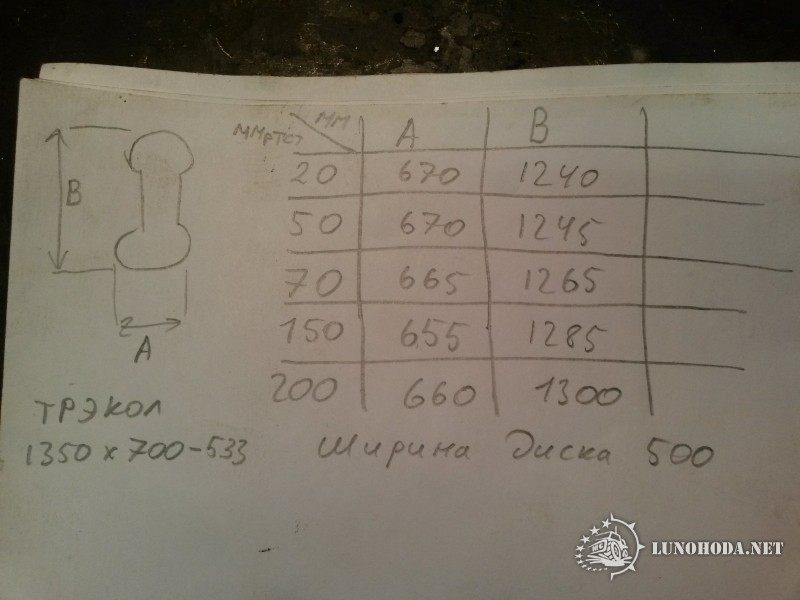 мм A B
ммртст
20 670 1240
50 670 1245
70 665 1265
150 655 1285
200 660 1300
B
A
ТРЭКОЛ
1350 x 700-533 Ширина Диска 500
LUNOHODA.NET